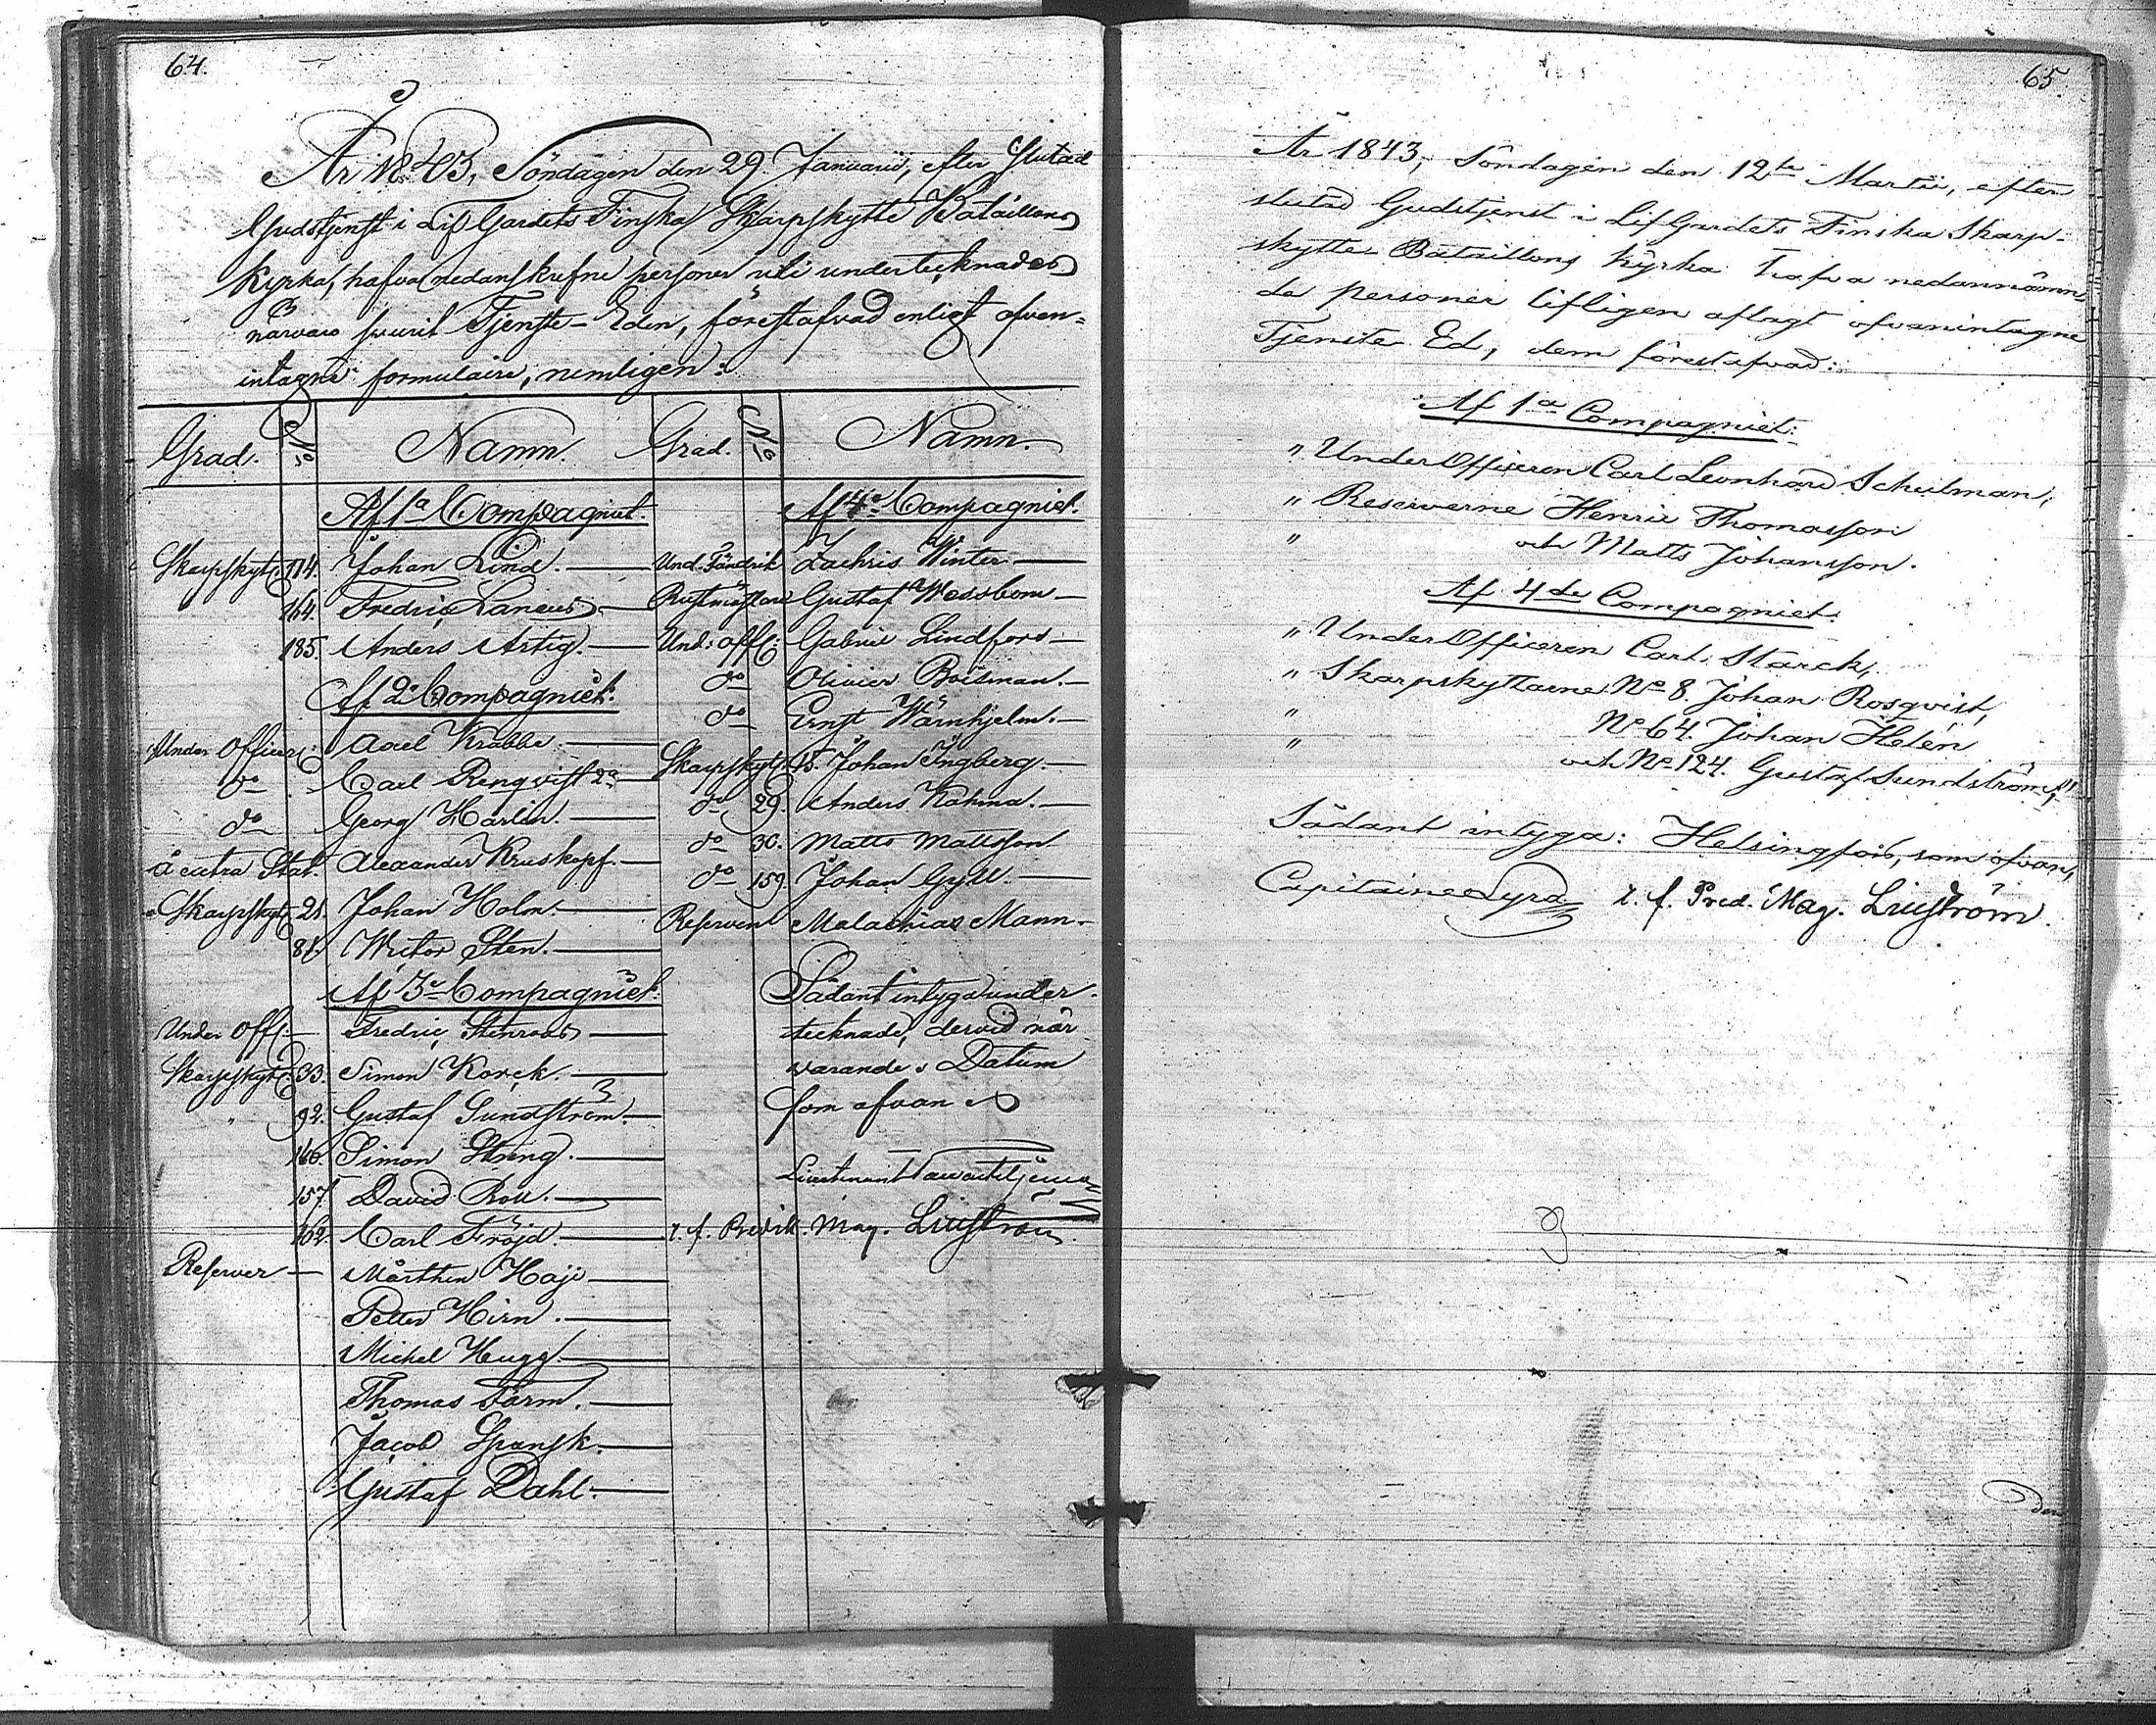 64.
År 1843, Söndagen den 29 Januarii, efter slutad
Gudstjenst i Lif Gardets Finska Skarpskytte Bataillons
Kyrka, hafva nedanskrefne personer uti undertecknades
närvaro svurit Tjenste-Eden, förestafvad enligt ofvan-
intagne formulaire, nemligen:
Grad. No Namn.
Af 1a Compagniet.
Skarpskytt: 114. Johan Lind.
164. Fredric Laneus
185. Anders Artig.
Af 2a Compagniet:
Under Officer: Axel Krabbe.
do Carl Renqvist 2a
do Georg Harlin.
à extra Stat. Alexander Kruskopf.
Skarpskytt: 21. Johan Holm.
81. Wictor Sten.
Af 3e Compagniet.
Under Off: Fredric Stenroos
Skarpskytt: 33. Simon Korck.
" 92. Gustaf Sundström.
146. Simon Streng.
157. David Roll.
162. Carl Fröjd.
Reserver Mårthen Haji
Petter Hirn.
Michel Hugg.
Thomas Farm.
Jacob Spansk.
Gustaf Dahl.
Grad. No Namn.
Af 4e Compagniet.
Und. Fändrik Zachris Winter
Rustmästare Gustaf Wessbom
Und: off: Gabriel Lindfors
do Olivier Boisman.
do Ernst Wärnhjelm.
Skarpskytt: 15. Johan Ingberg.
do 29. Anders Kahma.
do 30. Matts Mattsson
do 159. Johan Gyll.
Reserven Malachias Mann.
Sådant intyga under-
tecknade, dervid när
varande. Datum
som ofvan
Lieutenant
t. f. Predik. Mag. Liljeström.
65.
År 1843, Söndagen den 12te Martii, efter
slutad Gudstjenst i Lif Gardets Finska Skarp-
skytte Bataillons Kyrka hafva nedannämn
de personer lifligen aflagt ofvanintagne
Tjenste Ed, dem förestafvad:
Af 1a Compagniet:
" UnderOfficeren Carl Leonhard Schulman,
" Reserverne Henric Thomasson
" och Matts Johansson.
Af 4de Compagniet.
" UnderOfficeren Carl Starck,
" Skarpskyttarne No 8 Johan Rosqvist,
" No 64. Johan Helén
" och No 124. Gustaf Sundström,
Sådant intyga: Helsingfors, som ofvan,
Capitaine Lyra t. f. Pred. Mag. Liljeström.